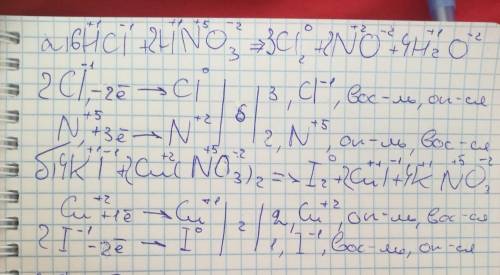 а) 6H⁺¹Cl⁻¹ + 2H⁺¹N⁺⁵O₃⁻² ⇒ 3Cl₂⁰ + 2N⁺²O⁻² + 4H₂⁺¹O⁻²
2Cl⁻¹ - 2ē → Cl⁰ | 6 | 3, Cl⁻¹, вос-ль, ок-ся
N⁺⁵ + 3ē → N⁺² | 2, N⁺⁵, ок-ль, вос-ся
б) 4K⁺¹I⁻¹ + 2Cu⁺²(N⁺⁵O₃⁻²)₂ => I₂⁰ + 2Cu⁺¹I⁻¹ + 4K⁺¹N⁺⁵O₃⁻²
Cu⁺² + 1ē → Cu⁺¹ | 2 | 2, Cu⁺², ок-ль, вос-ся
2I⁻¹ - 2ē → I⁰ | 1, I⁻¹, вос-ль, ок-ся